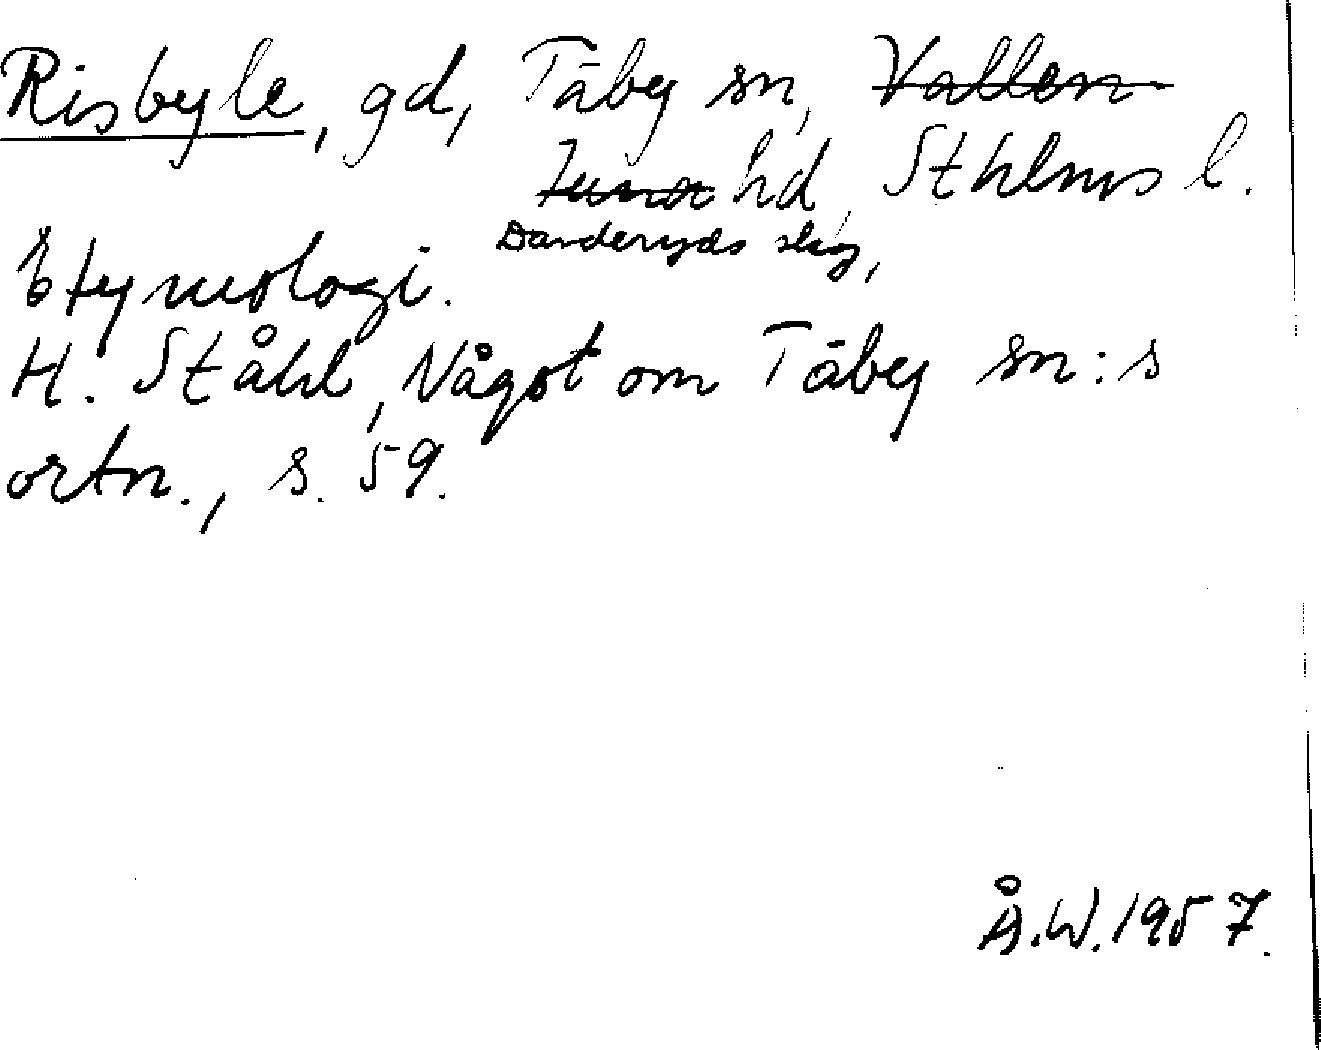 Risbyle, gd, Täby sn, Vallen
tuna hd, Sthlms l.
Danderyds slg,
Etymologi.
H. Ståhl, Något om Täby sn:s
ortn., s. 59.
Å.W. 1957.